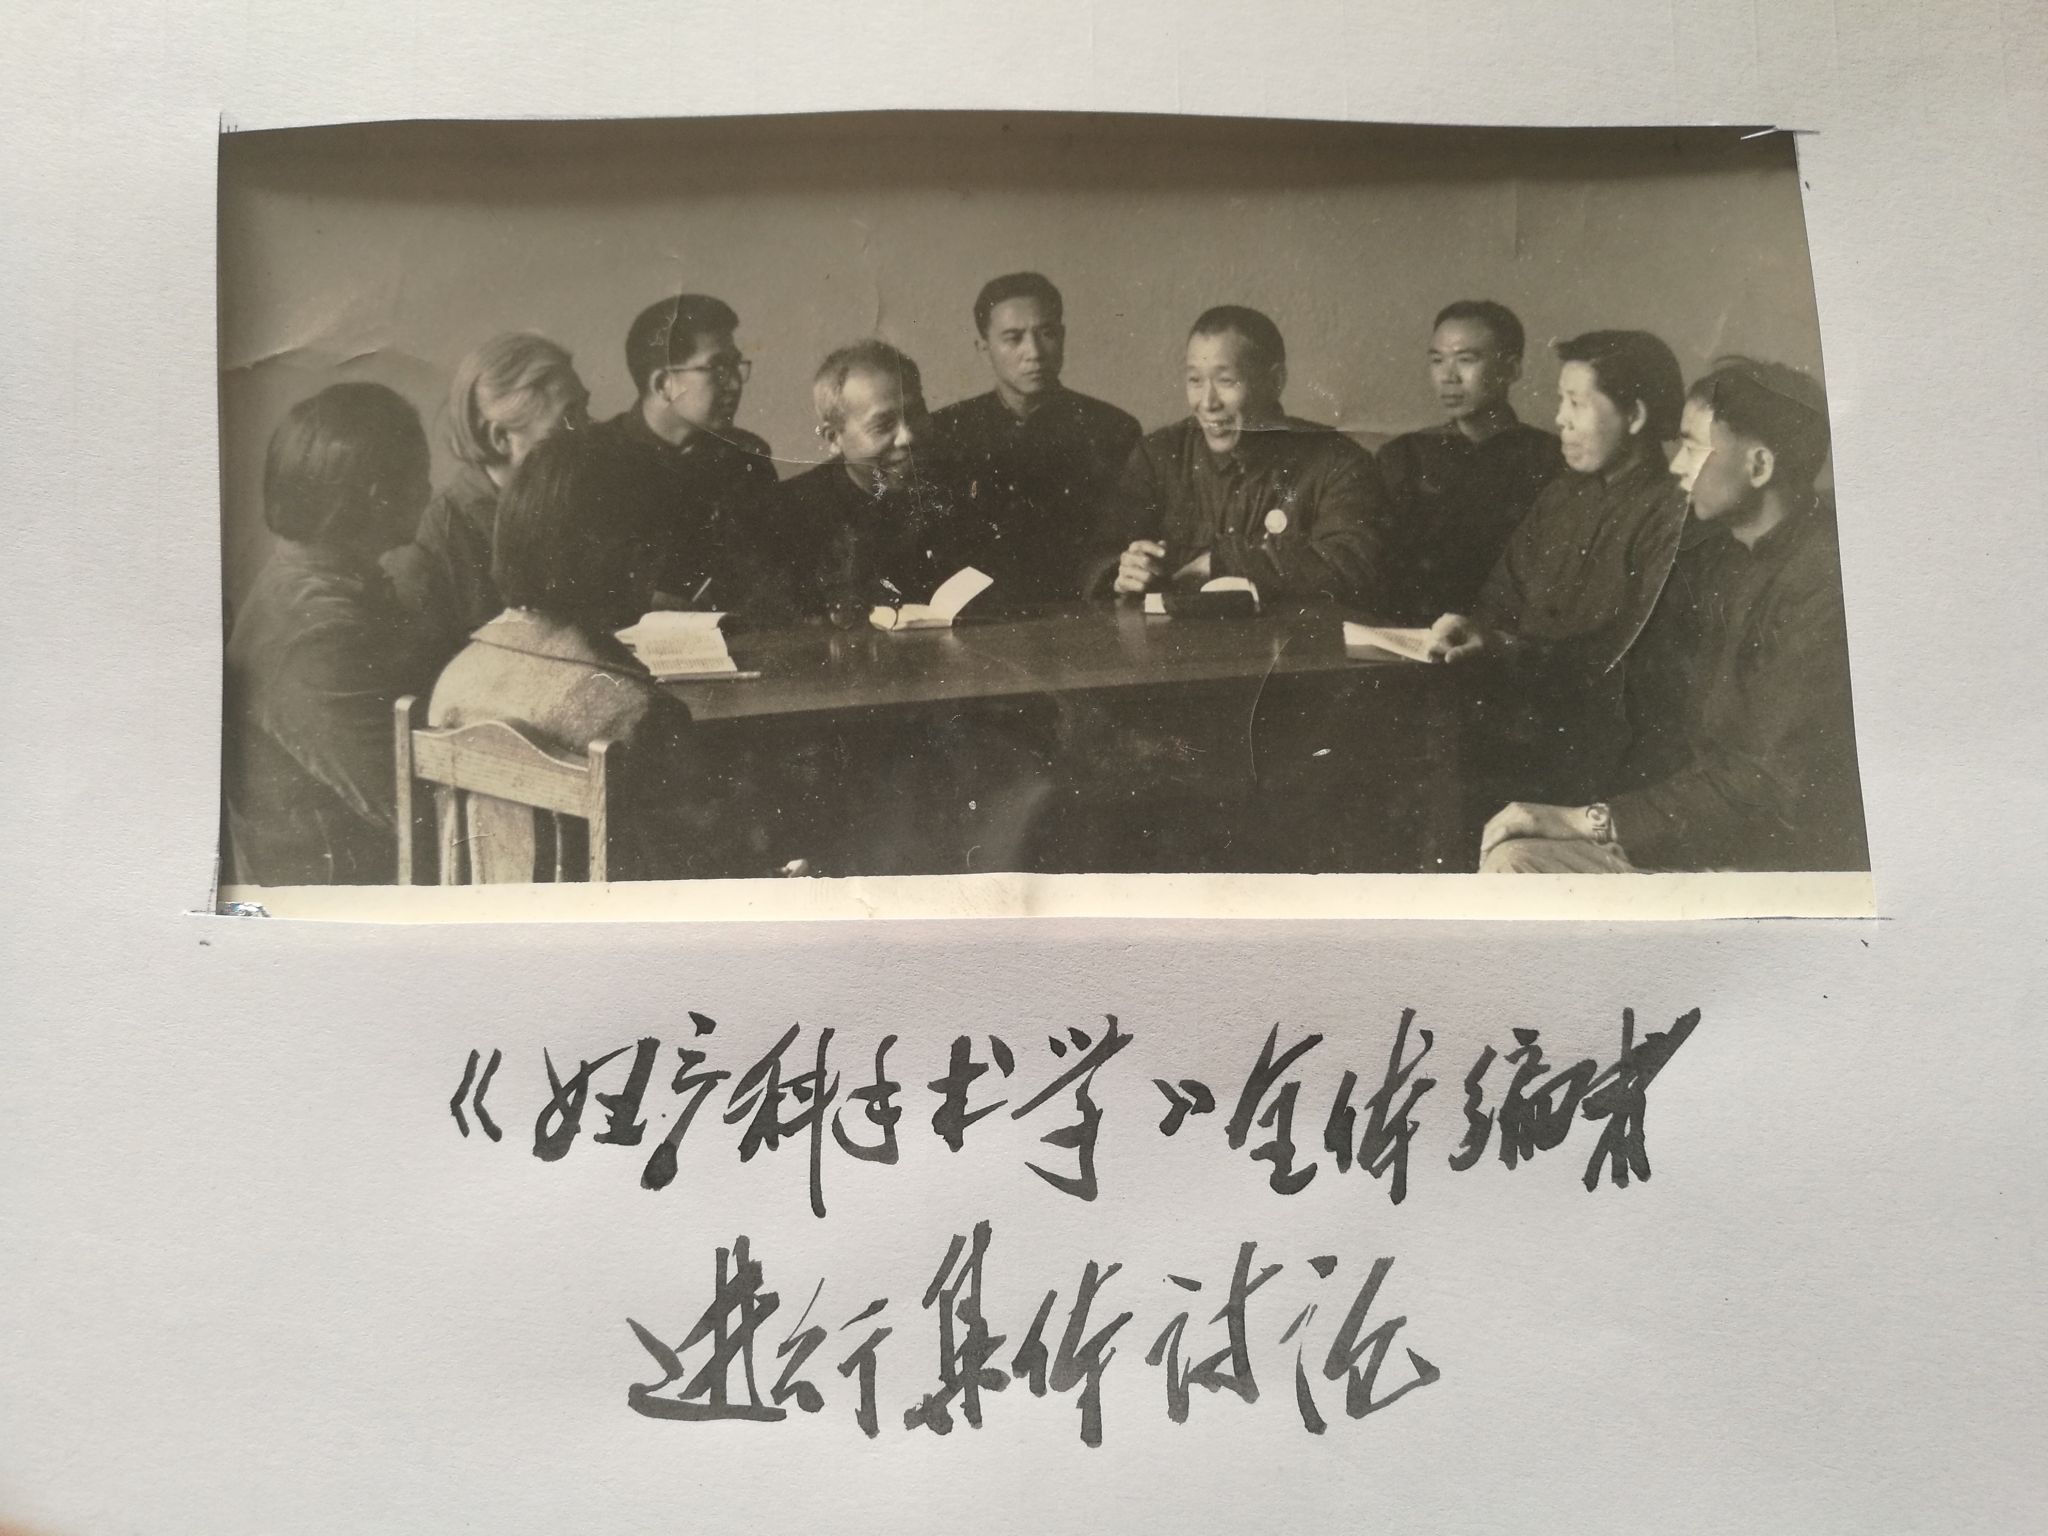 《妇产科手术学》全体编者
进行集体讨论